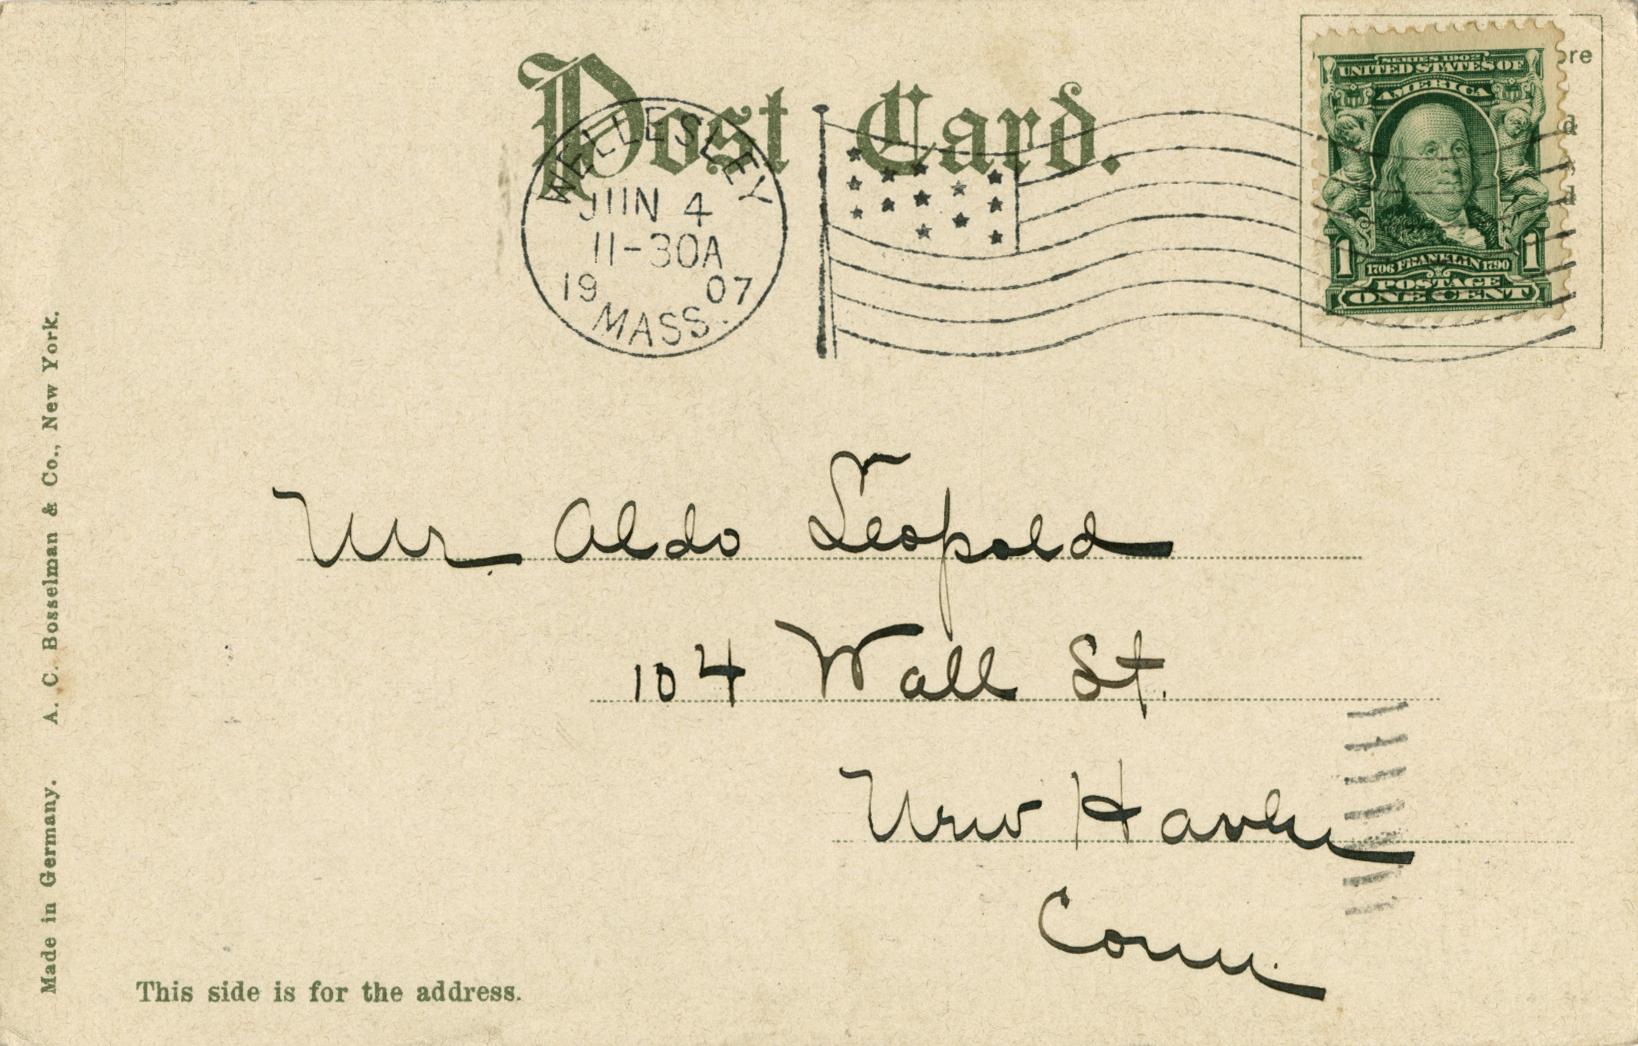 Post Card.
WELLESLEY
JUN 4
11-30A
19 07
MASS.
SERIES 1902
UNITED STATES OF
AMERICA
1 1
1706 FRANKLIN 1790
POSTAGE
ONE CENT
Mr Aldo Leopold
104 Wall St.
New Haven
Conn.
This side is for the address.
Made in Germany. A. C. Bosselman & Co., New York.